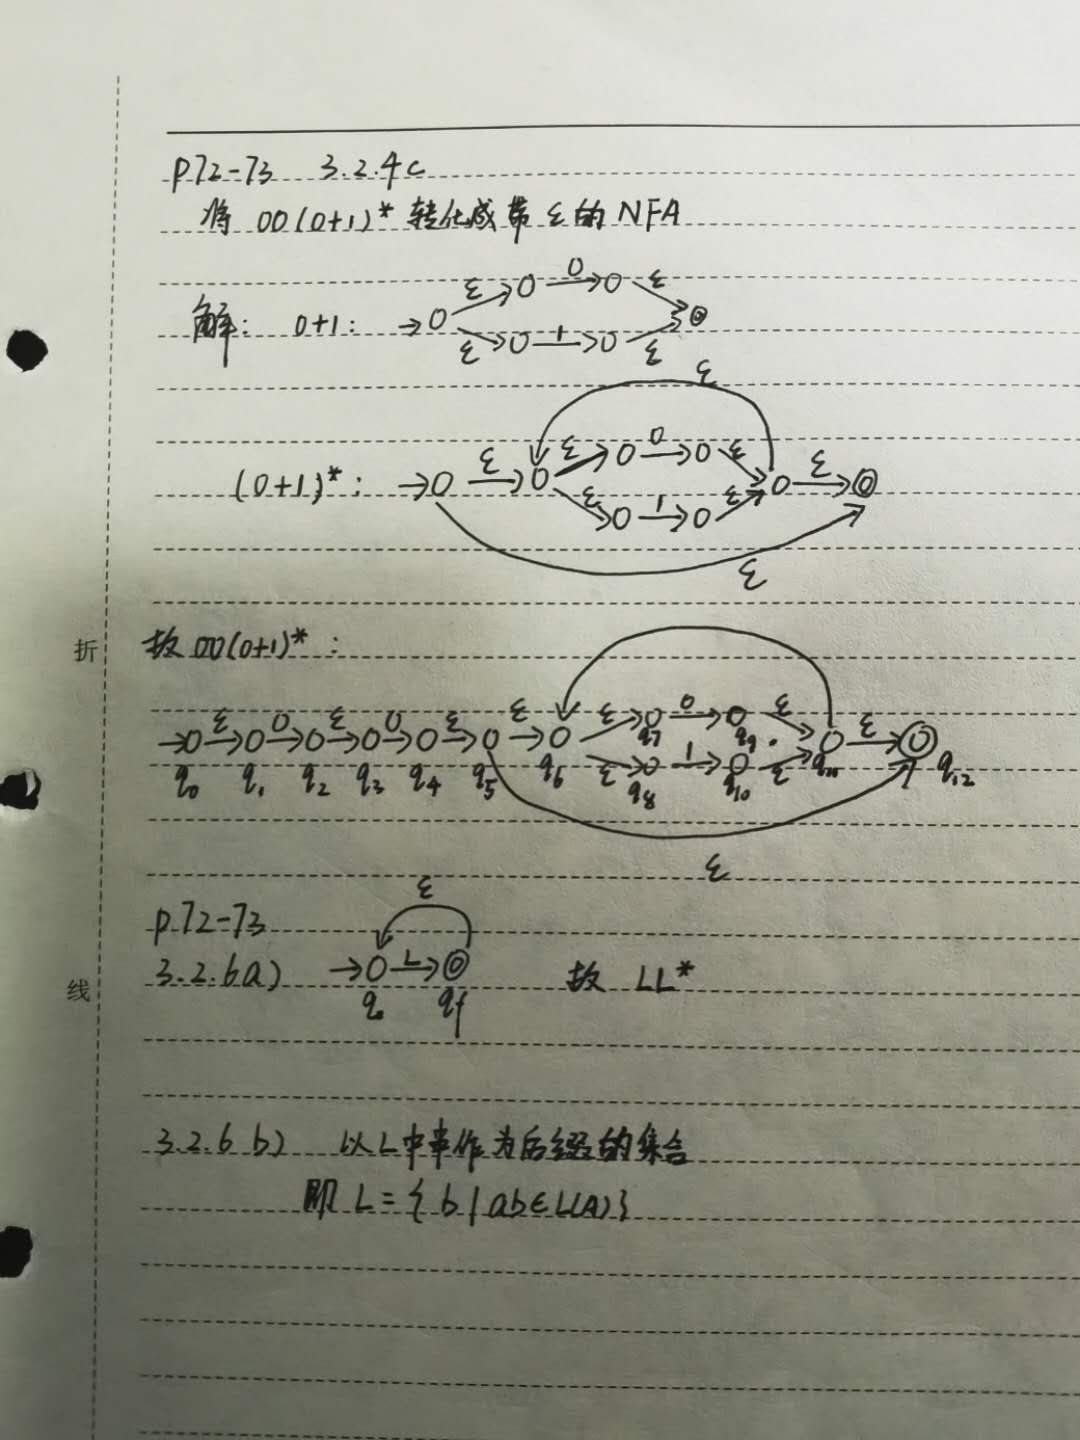 P72-73 3.2.4c
将 00(0+1)* 转化成带 ε 的 NFA
解: 0+1: ε 0 ε ε 1 ε
(0+1)*: ε ε ε 0 ε ε 1 ε ε ε
故 00(0+1)*:
ε 0 ε 0 ε ε ε 0 ε ε 1 ε ε ε
q0 q1 q2 q3 q4 q5 q6 q7 q8 q9 q10 q11 q12
折
P.72-73
3.2.6a) ε L q0 qf 故 LL*
线
3.2.6 b) 以L中串作为后缀的集合
即 L = { b | ab∈L(A)}